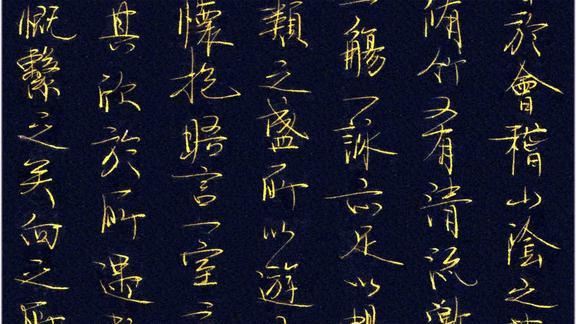 於會稽山陰之
脩竹又有清流激
一觴一詠亦足以暢
類之盛所以遊
懷抱晤言一室之
其欣於所遇
慨繫之矣向之所